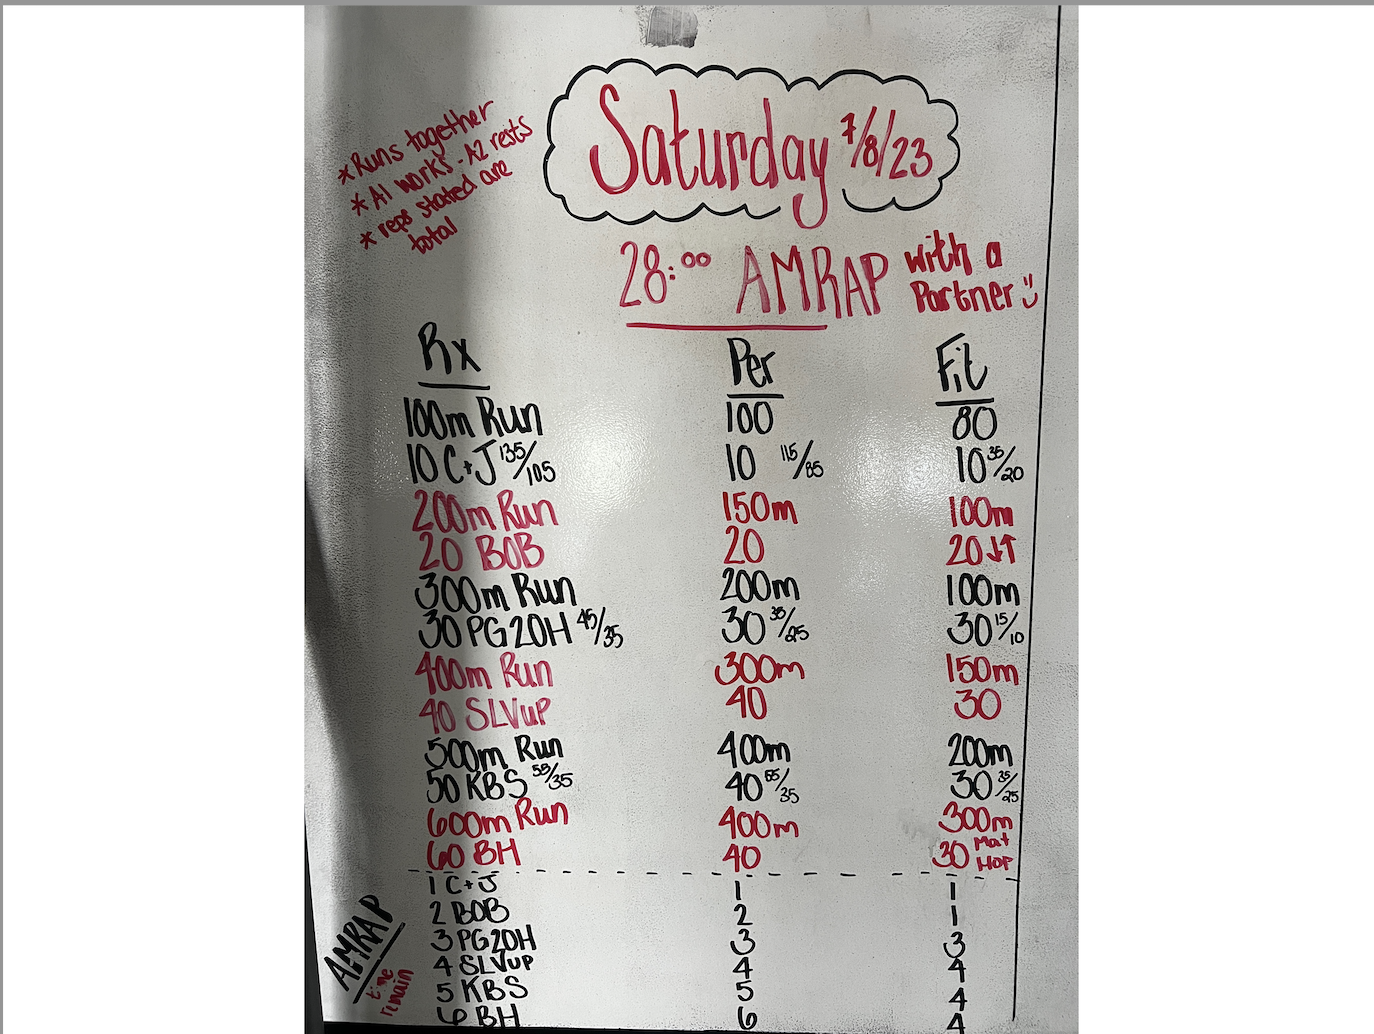 *Runs together
*A1 works - A2 rests
*reps stated are
total
Saturday 7/8/23
28:00 AMRAP with a
Partner
Rx Per Fit
100m Run 100 80
10 C+J 135/105 10 115/85 10 35/20
200m Run 150m 100m
20 BOB 20 20 ↓↑
300m Run 200m 100m
30 PG2OH 45/35 30 35/25 30 15/10
400m Run 300m 150m
40 SLVup 40 30
500m Run 400m 200m
50 KBS 55/35 40 55/35 30 35/25
600m Run 400m 300m
60 BH 40 30 Mat Hop
AMRAP
time
remain
1 C+J 1 1
2 BOB 2 1
3 PG2OH 3 3
4 SLVup 4 4
5 KBS 5 4
6 BH 6 4